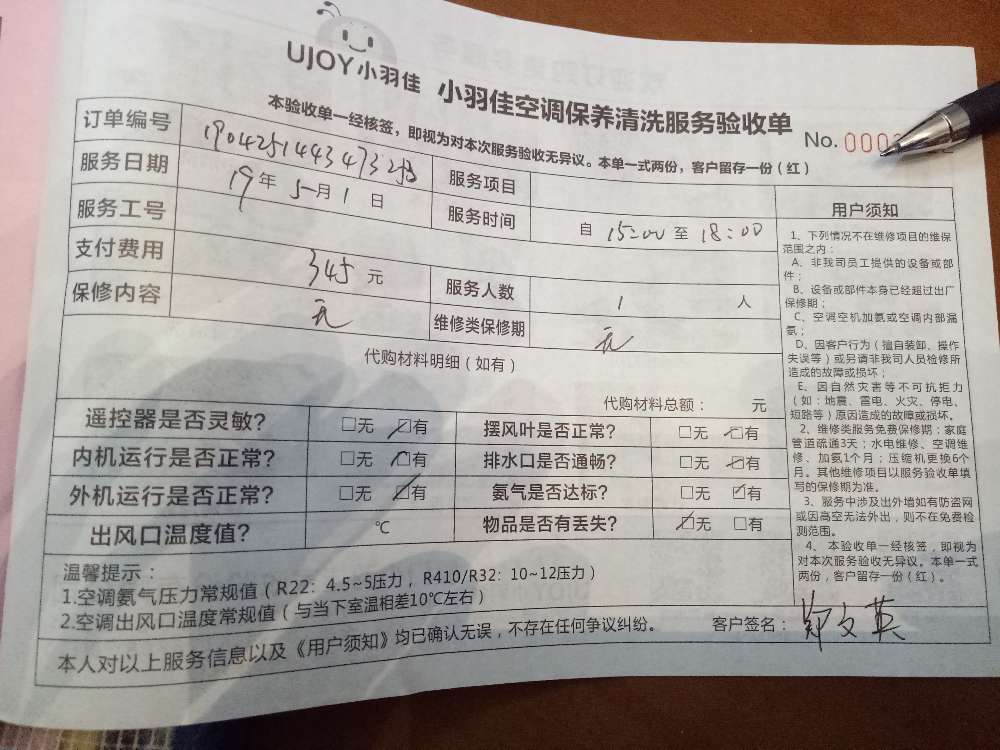 UJOY小羽佳 小羽佳空调保养清洗服务验收单
本验收单一经核签，即视为对本次服务验收无异议。本单一式两份，客户留存一份（红）
No. 000
订单编号 服务项目
服务日期 19年 5月 1日 服务时间 自 15:00 至 18:00
服务工号
支付费用 345元 服务人数 1 人
保修内容 无 维修类保修期 无
代购材料明细（如有）
代购材料总额： 元
遥控器是否灵敏? □无 ☑有 摆风叶是否正常? □无 ☑有
内机运行是否正常? □无 ☑有 排水口是否通畅? □无 ☑有
外机运行是否正常? □无 ☑有 氨气是否达标? □无 ☑有
出风口温度值? ℃ 物品是否有丢失? ☑无 □有
温馨提示：
1.空调氨气压力常规值（R22：4.5~5压力，R410/R32：10~12压力）
2.空调出风口温度常规值（与当下室温相差10℃左右）
本人对以上服务信息以及《用户须知》均已确认无误，不存在任何争议纠纷。 客户签名： 郑文英
用户须知
1、下列情况不在维修项目的维保
范围之内：
A、非我司员工提供的设备或部
件；
B、设备或部件本身已经超过出厂
保修期；
C、空调空机加氨或空调内部漏
氨；
D、因客户行为（擅自装卸、操作
失误等）或另请非我司人员检修所
造成的故障或损坏；
E、因自然灾害等不可抗拒力
（如：地震、雷电、火灾、停电、
短路等）原因造成的故障或损坏。
2、维修类服务免费保修期；家庭
管道疏通3天；水电维修、空调维
修、加氨1个月；压缩机更换6个
月。其他维修项目以服务验收单填
写的保修期为准。
3、服务中涉及出外墙如有防盗网
或因高空无法外出，则不在免费检
测范围。
4、本验收单一经核签，即视为
对本次服务验收无异议。本单一式
两份，客户留存一份（红）。